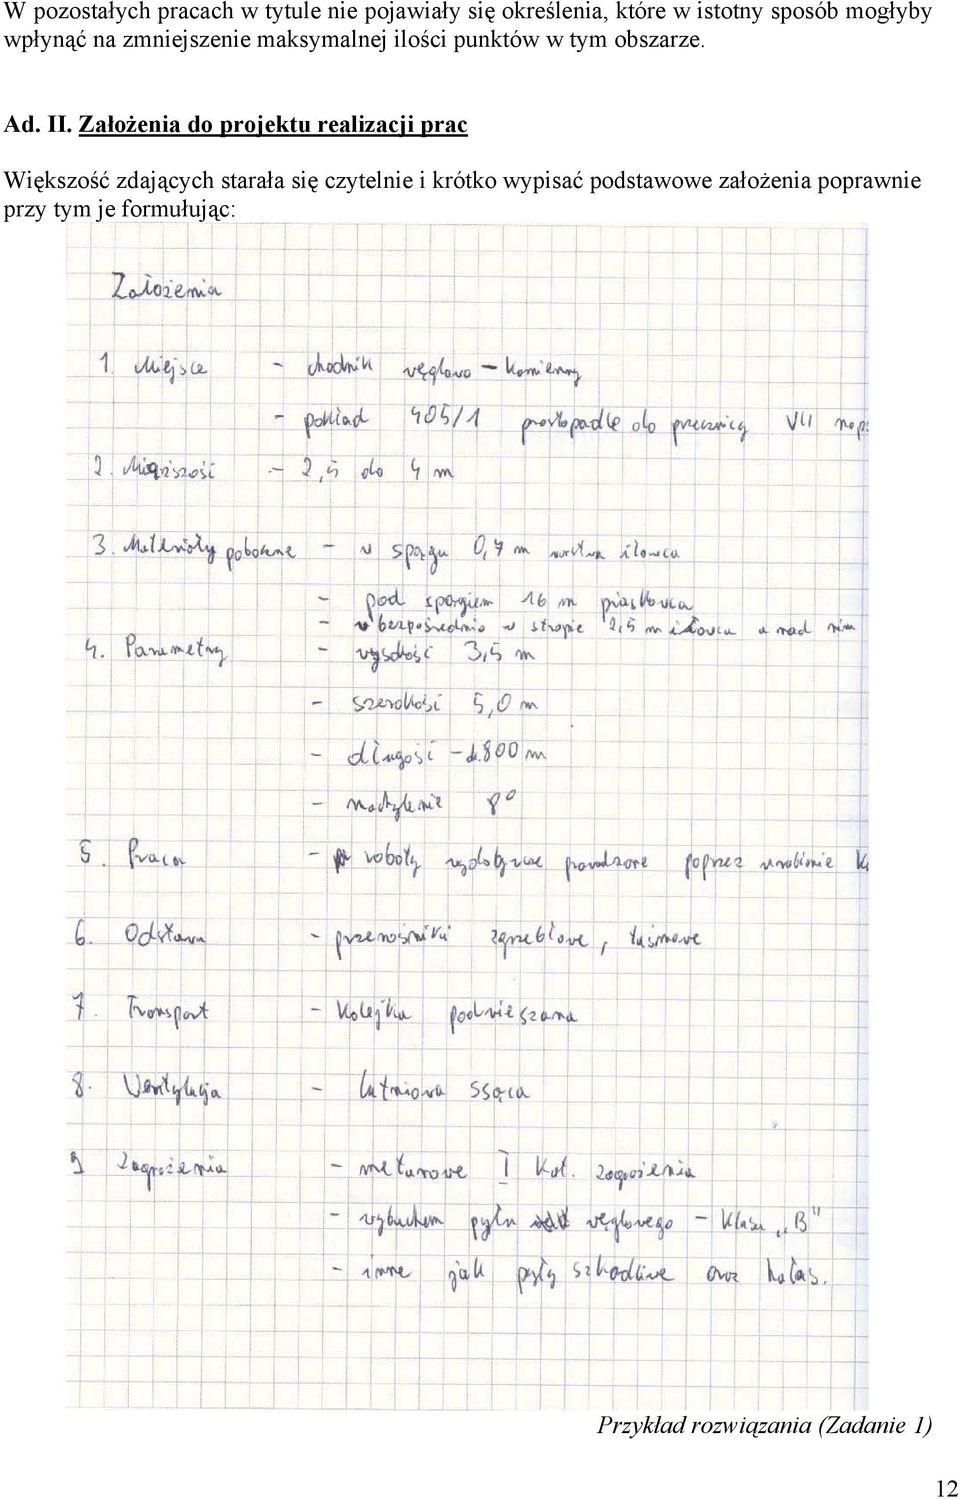 W pozostałych pracach w tytule nie pojawiały się określenia, które w istotny sposób mogłyby
wpłynąć na zmniejszenie maksymalnej ilości punktów w tym obszarze.
Ad. II. Założenia do projektu realizacji prac
Większość zdających starała się czytelnie i krótko wypisać podstawowe założenia poprawnie
przy tym je formułując:
Założenia
1. Miejsce - chodnik węglowo - kamienny
- pokład 405/1 prostopadle do przecznicy VII
2. Miąższość - 2,5 do 4 m
3. Materiały poboczne - w spągu 0,7 m warstwa iłowca
- pod spągiem 16 m piaskowca
- bezpośrednio w stropie 2,5 m iłowca a nad nim
4. Parametry - wysokość 3,5 m
- szerokość 5,0 m
- długość - ok. 800 m
- nachylenie 8°
5. Praca - roboty wydobywcze prowadzone poprzez urabianie
6. Odstawa - przenośniki zgrzebłowe, taśmowe
7. Transport - kolejka podwieszana
8. Wentylacja - lutniowa ssąca
9 Zagrożenia - metanowe I kat. zagrożenia
- wybuchem pyłu węglowego - klasa „B"
- inne jak pyły szkodliwe oraz hałas.
Przykład rozwiązania (Zadanie 1)
12